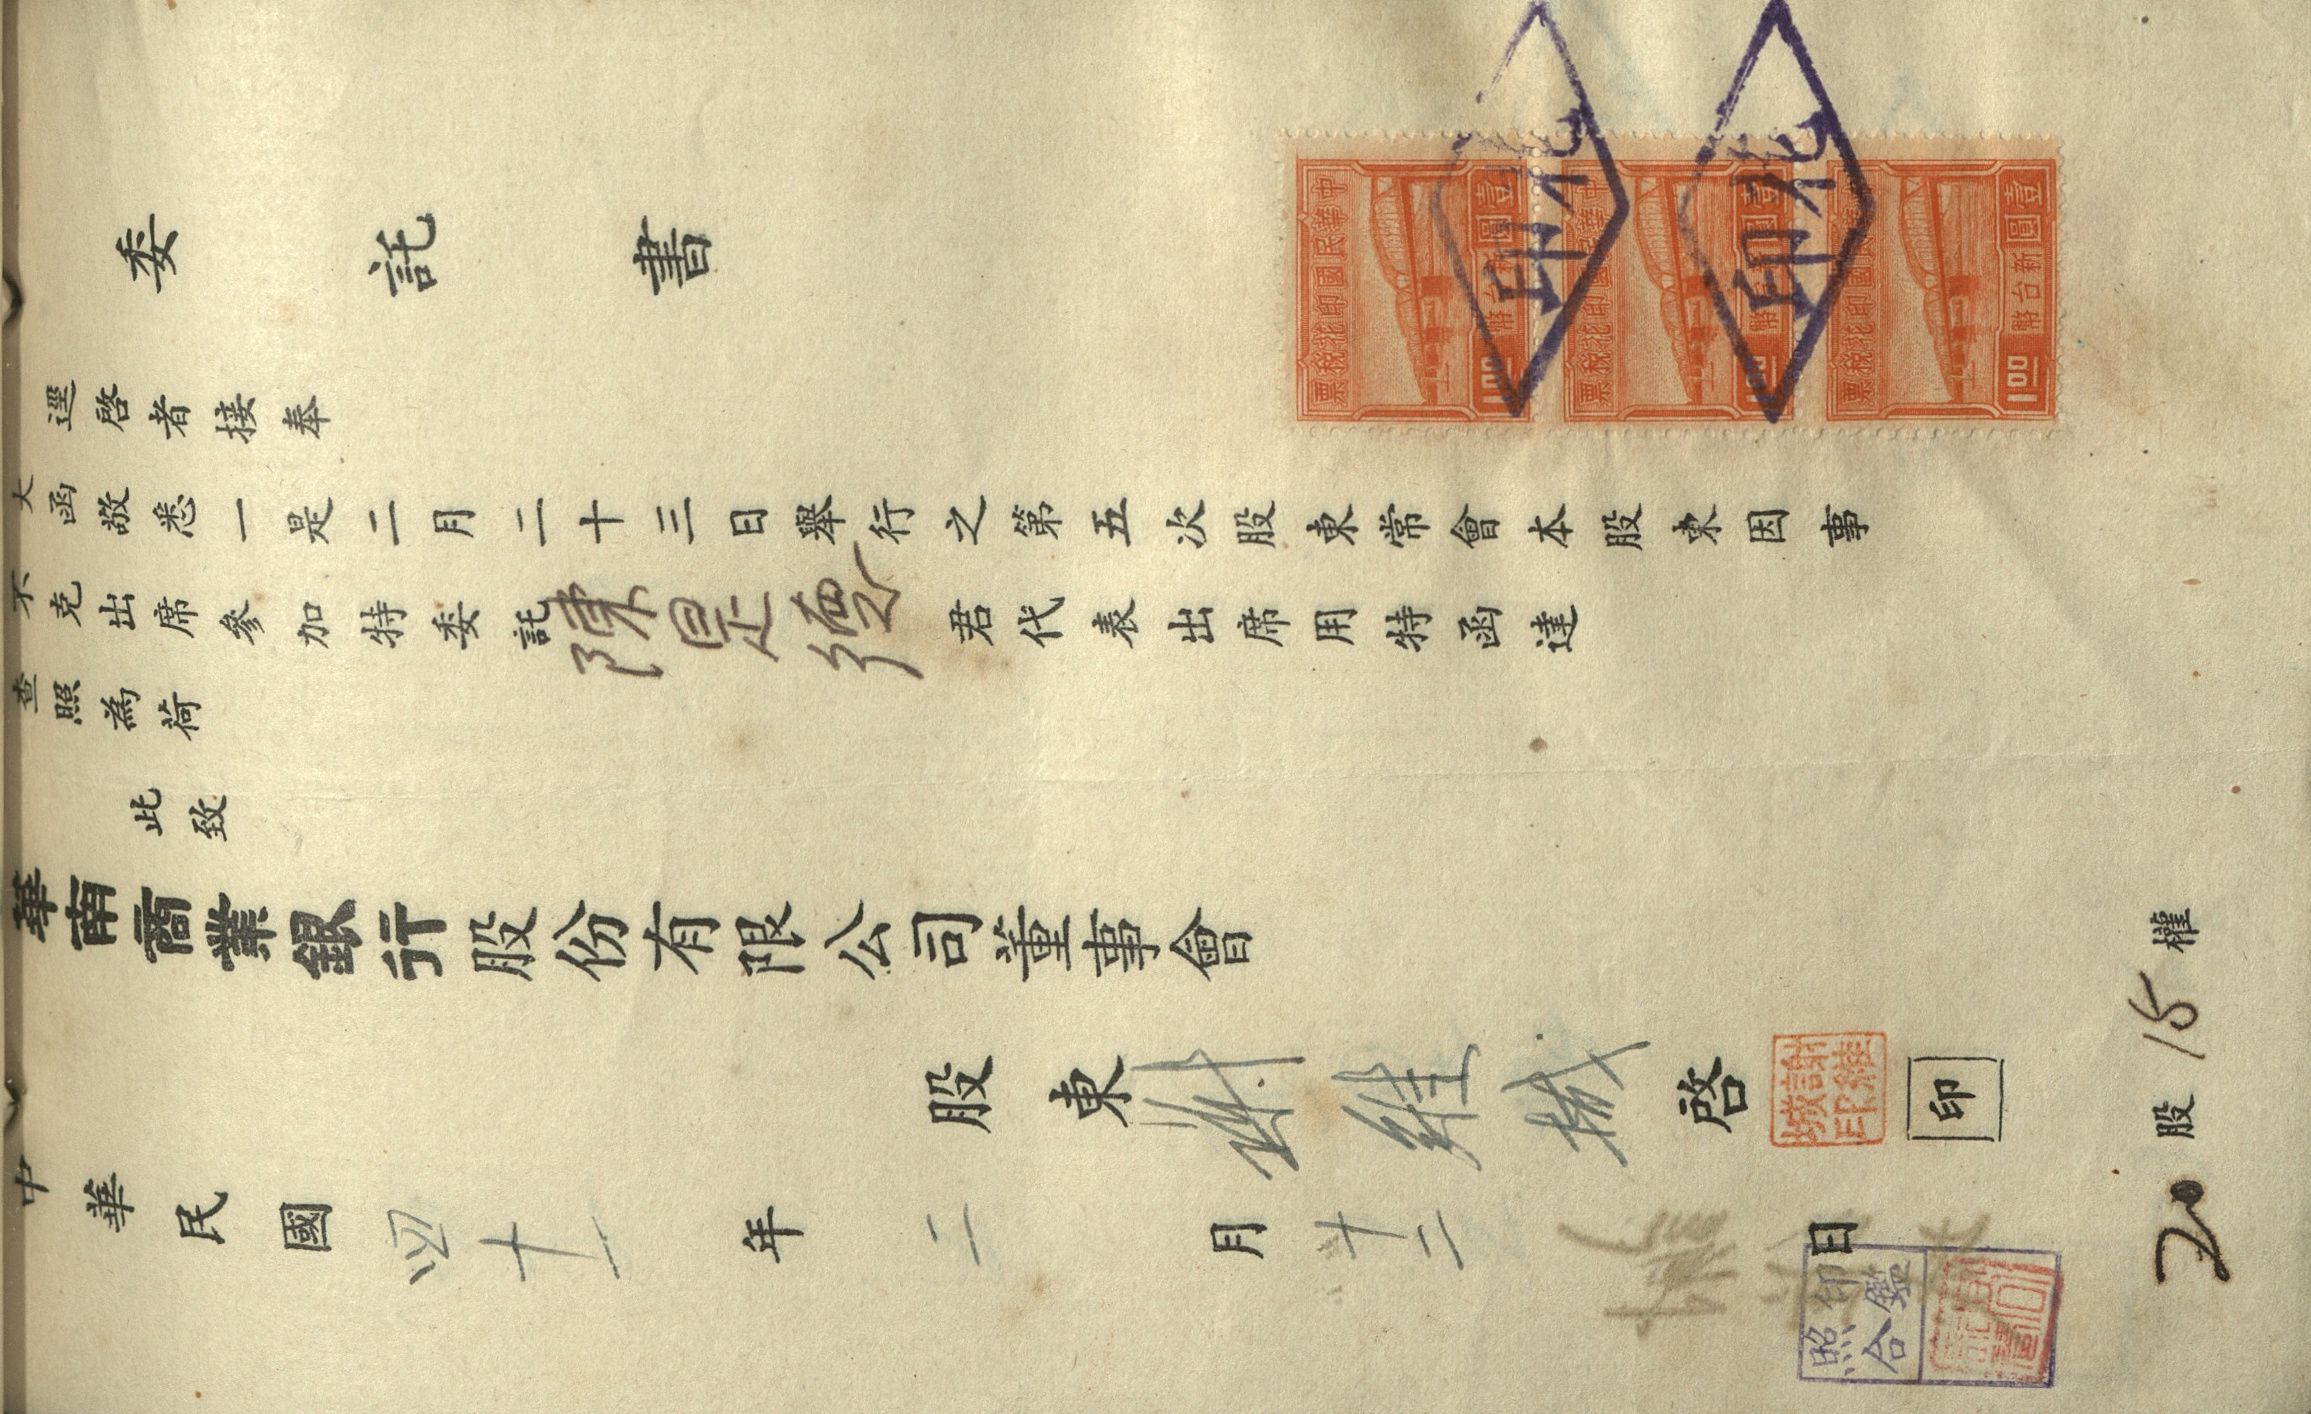 委託書
逕啓者接奉
大函敬悉一是二月二十三日舉行之第五次股東常會本股東因事
不克出席參加特委託陳是德君代表出席用特函達
查照為荷
此致
華南商業銀行股份有限公司董事會
股東謝維城啓
謝維
城印
印
中華民國四十一年二月十二日
20股15權
印鑑
照合
中華民國印花稅票
壹圓
新台幣
1.00
中華民國印花稅票
壹圓
新台幣
1.00
中華民國印花稅票
壹圓
新台幣
1.00
印花
印花